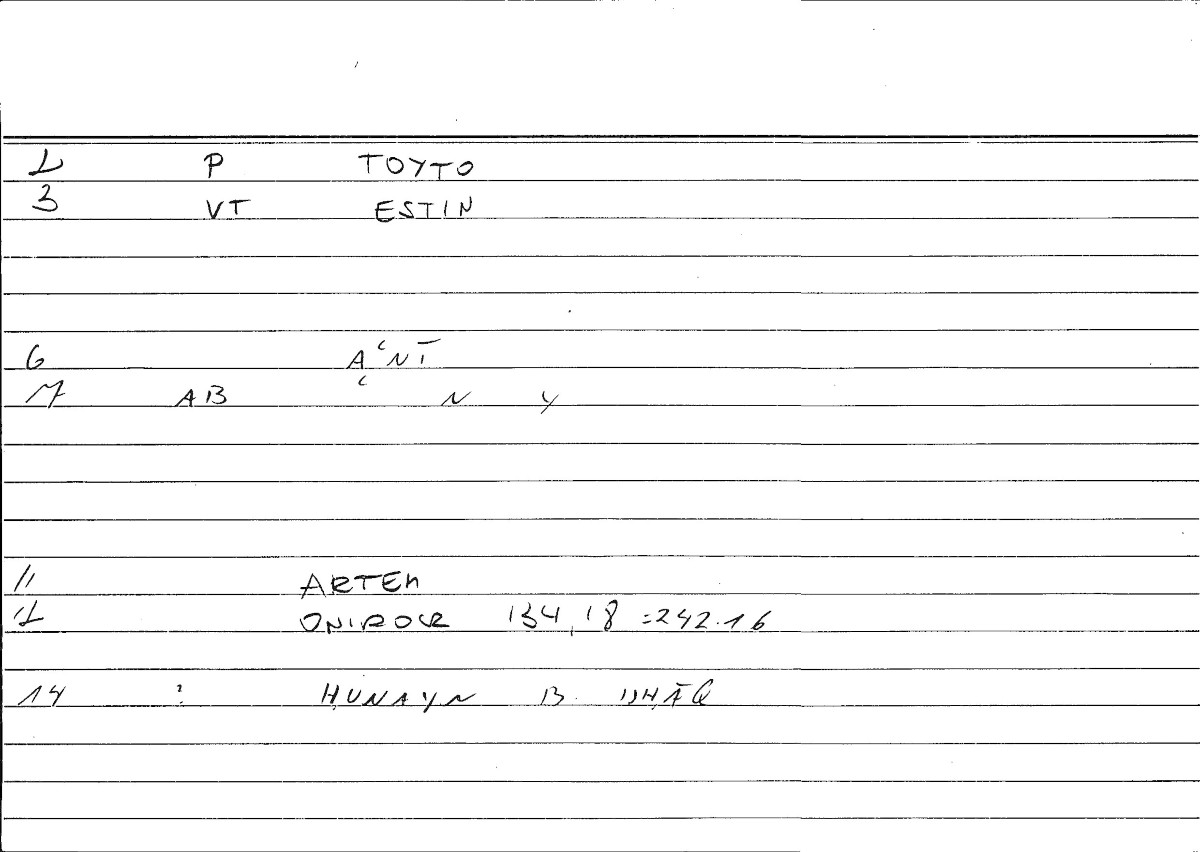 2 P TOYTO
3 VT ESTIN
6 AʿNĪ
7 AB ʿ N Y
11 ARTEM
12 ONIROCR 134,18 =242.16
14 ? ḤUNAYN B. ISḤĀQ